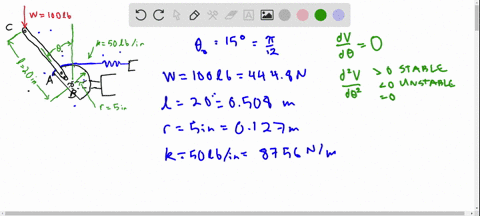 W = 100lb
C
θ
k = 50 lb/in
l = 20in
A
B
r = 5in
θ₀ = 15° = π/12
W = 100 lb = 444.8 N
l = 20" = 0.508 m
r = 5in = 0.127 m
k = 50 lb/in = 8756 N/m
dV/dθ = 0
d²V/dθ² >0 STABLE
<0 UNSTABLE
=0